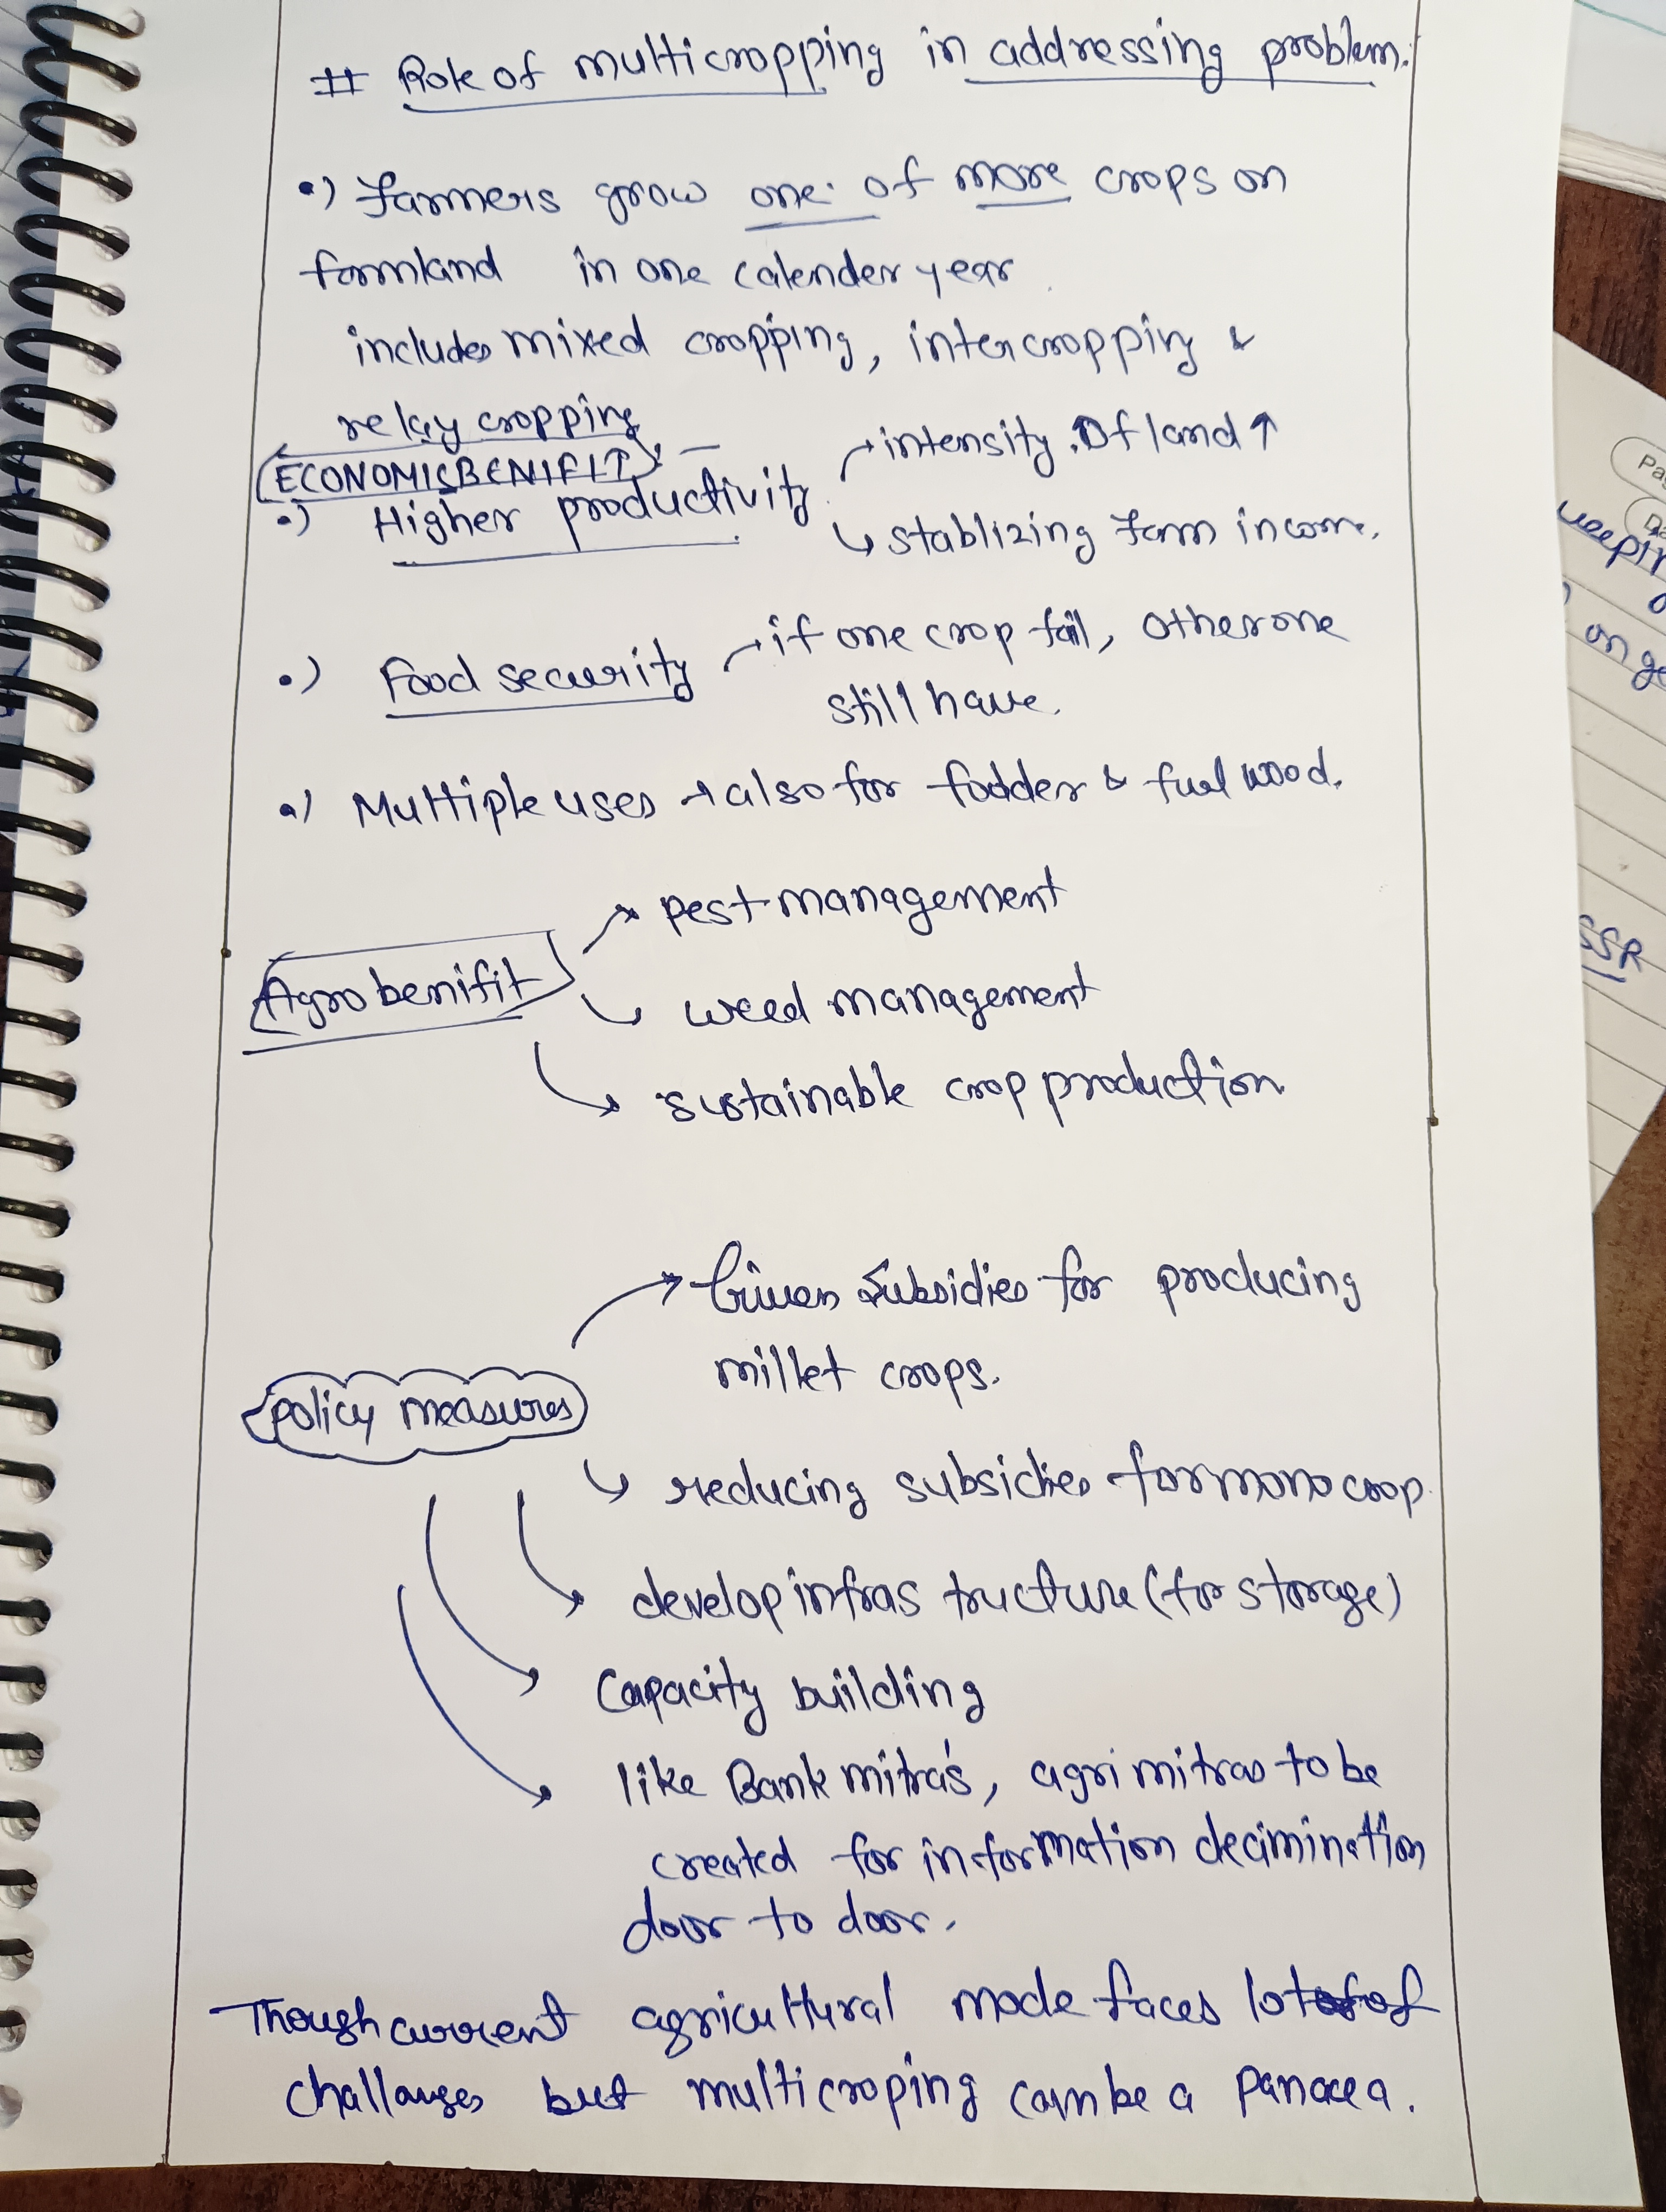 # Role of multicropping in addressing problem.
•) farmers grow one of more crops on
farmland in one calender year
includes mixed cropping, intercropping &
relay cropping
ECONOMICBENIFIT↑
•) Higher productivity
→ intensity of land ↑
↳ stablizing farm income.
•) Food security → if one crop fail, other one
still have.
•) Multiple uses → also for fodder & fuel wood.
Agro benifit
→ pest management
↳ weed management
→ sustainable crop production
policy measures
→ Given subsidies for producing
millet crops.
↳ reducing subsidies for mono crop.
→ develop infras tructure (for storage)
→ Capacity building
→ like Bank mitra's, agri mitras to be
created for information decimination
door to door.
Though current agricultural mode faces lot of
challanges but multicroping can be a panacea.
Pa
D
on g
SSR